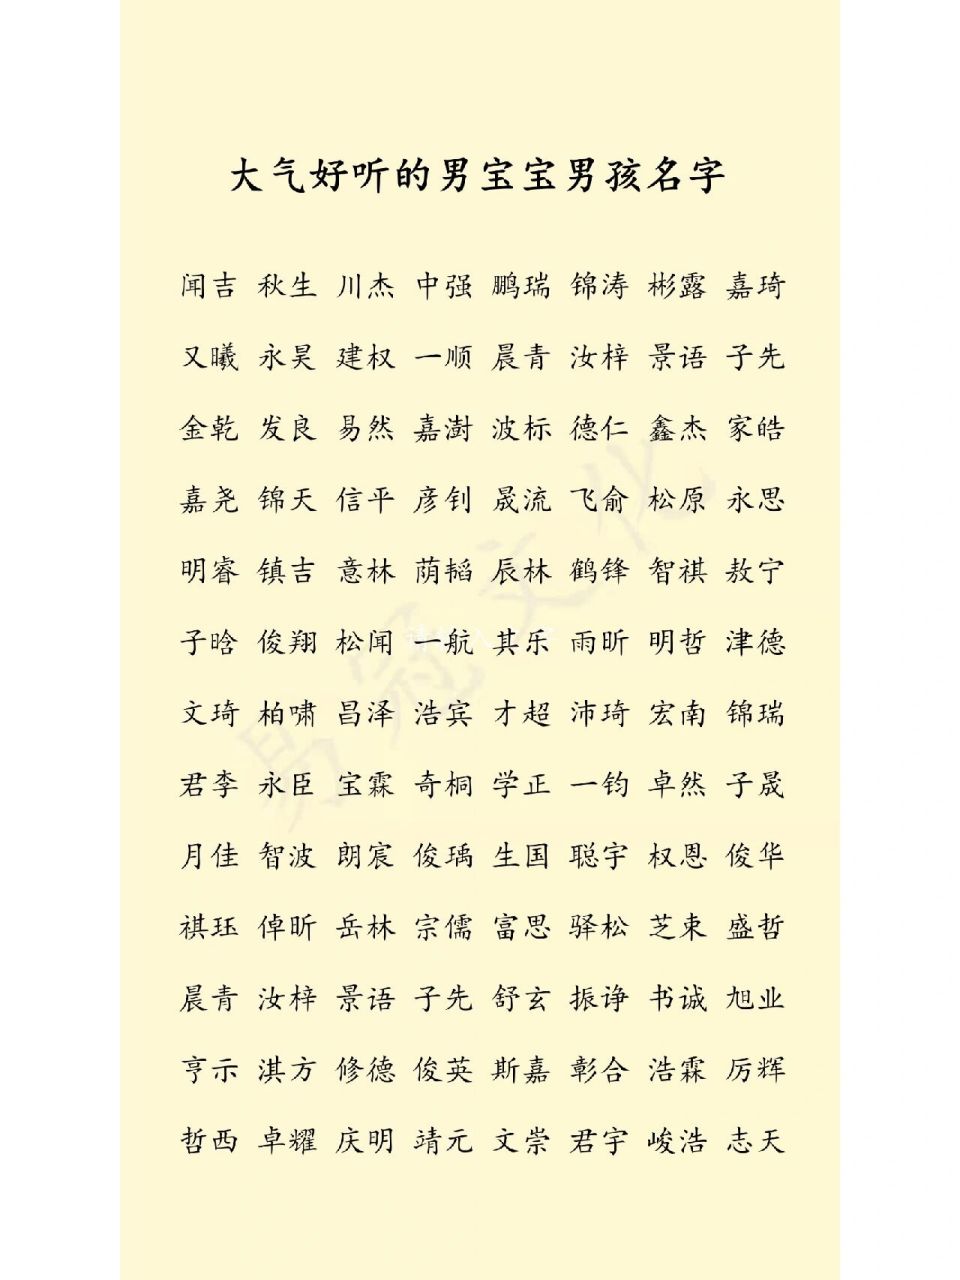 大气好听的男宝宝男孩名字
闻吉 秋生 川杰 中强 鹏瑞 锦涛 彬露 嘉琦
又曦 永昊 建权 一顺 晨青 汝梓 景语 子先
金乾 发良 易然 嘉澍 波标 德仁 鑫杰 家皓
嘉尧 锦天 信平 彦钊 晟流 飞俞 松原 永思
明睿 镇吉 意林 荫韬 辰林 鹤锋 智祺 敖宁
子晗 俊翔 松闻 一航 其乐 雨昕 明哲 津德
文琦 柏啸 昌泽 浩宾 才超 沛琦 宏南 锦瑞
君李 永臣 宝霖 奇桐 学正 一钧 卓然 子晟
月佳 智波 朗宸 俊瑀 生国 聪宇 权恩 俊华
祺珏 倬昕 岳林 宗儒 富思 驿松 芝束 盛哲
晨青 汝梓 景语 子先 舒玄 振诤 书诚 旭业
亨示 淇方 修德 俊英 斯嘉 彰合 浩霖 厉辉
哲西 卓耀 庆明 靖元 文崇 君宇 峻浩 志天
易冠文化